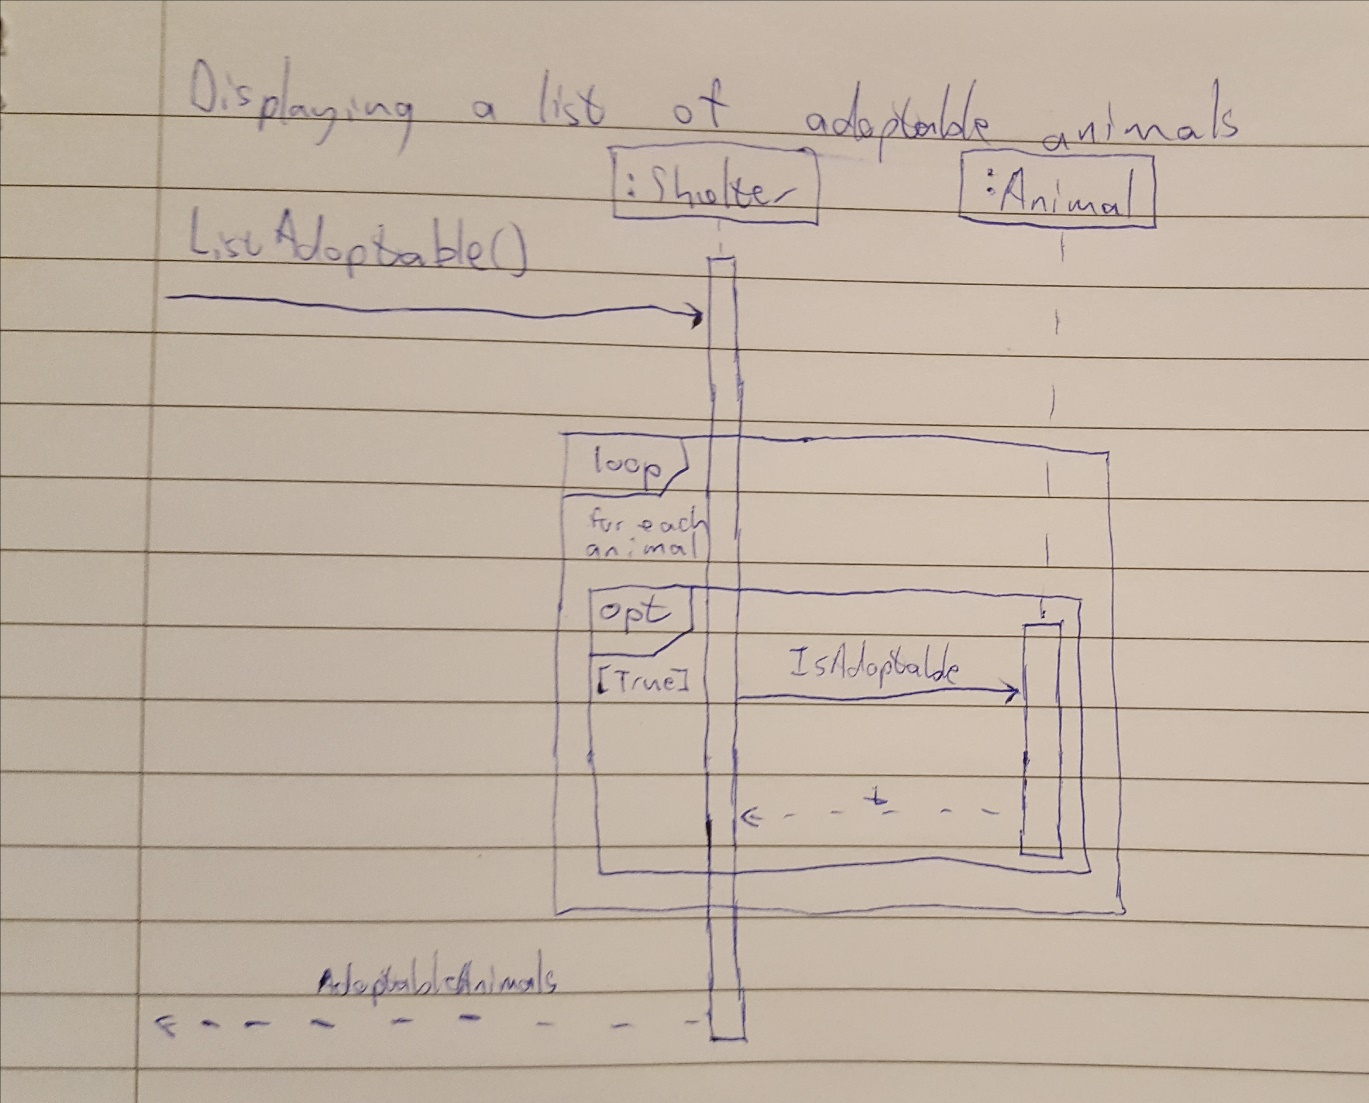 Displaying a list of adoptable animals
:Shelter
:Animal
ListAdoptable()
loop
for each
animal
opt
[True]
IsAdoptable
t
AdoptableAnimals